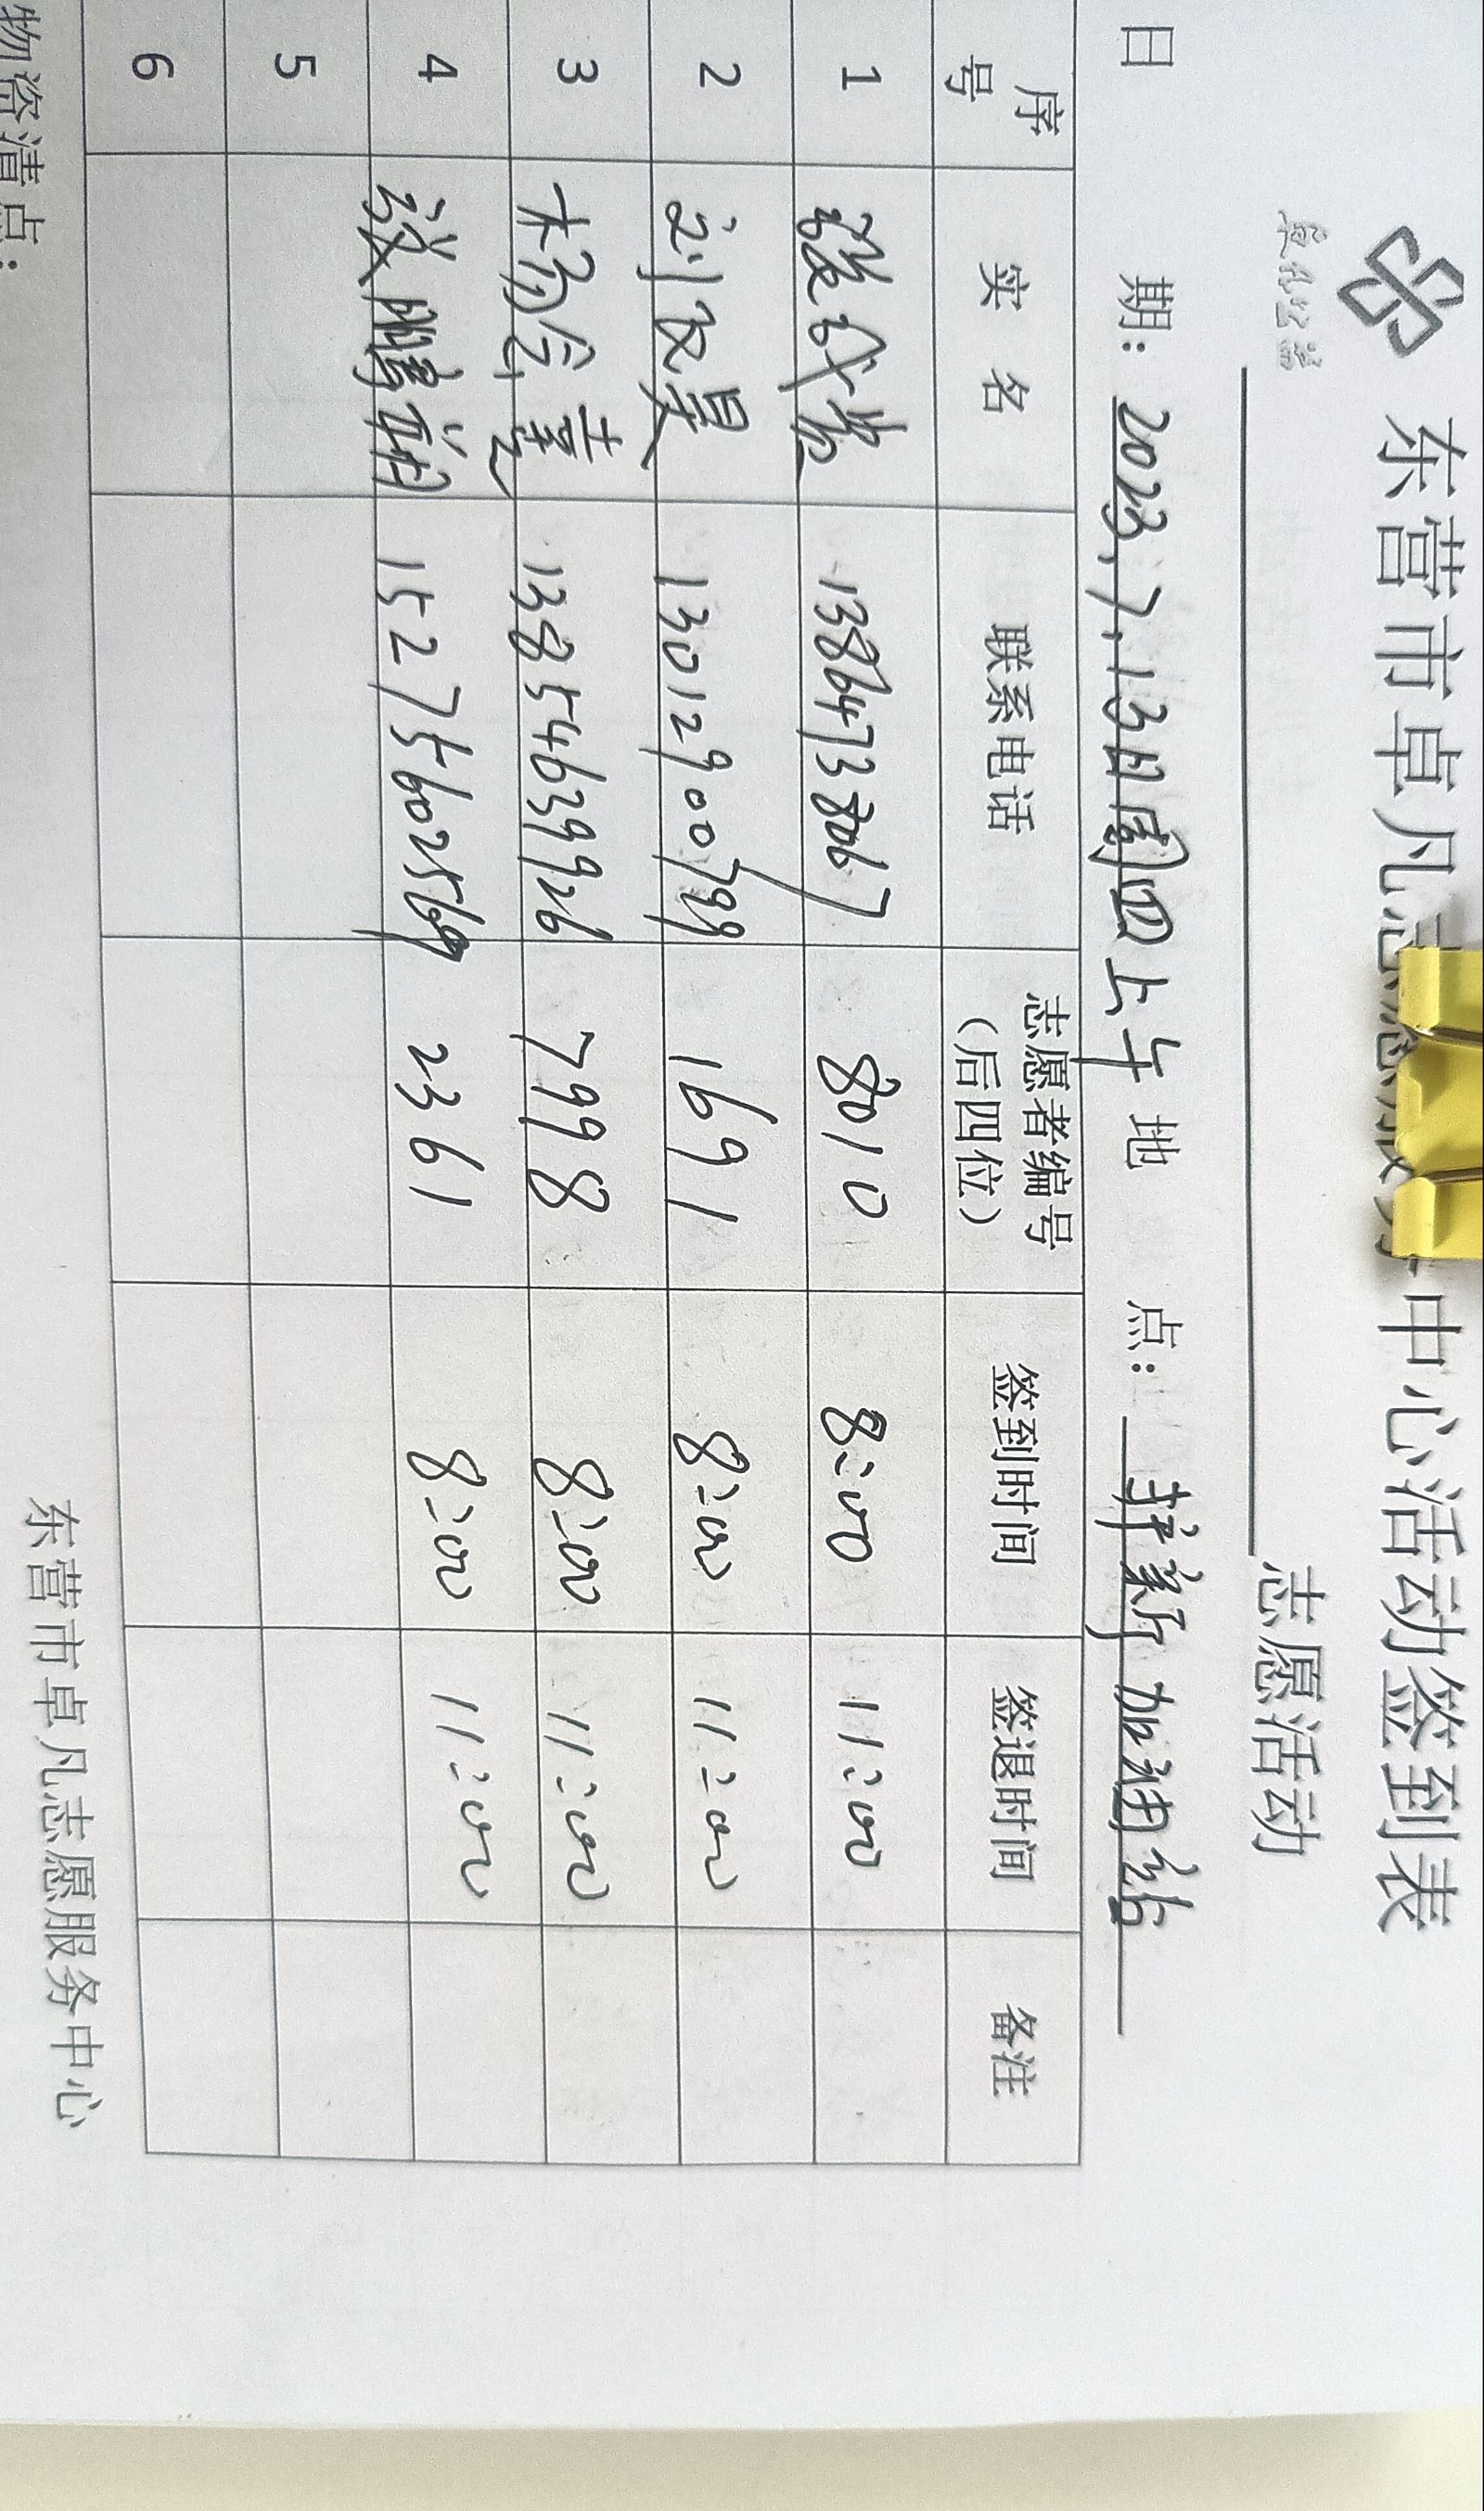 卓凡公益
东营市卓凡志愿服务中心活动签到表
志愿活动
日 期: 2023.7.13日周四上午 地 点: 辛新加油站
序号 实 名 联系电话 志愿者编号(后四位) 签到时间 签退时间 备注
1 13864738067 8010 8:00 11:00
2 13012900799 1691 8:00 11:00
3 13854639926 7998 8:00 11:00
4 15275602569 2361 8:00 11:00
5
6
物资清点:
东营市卓凡志愿服务中心